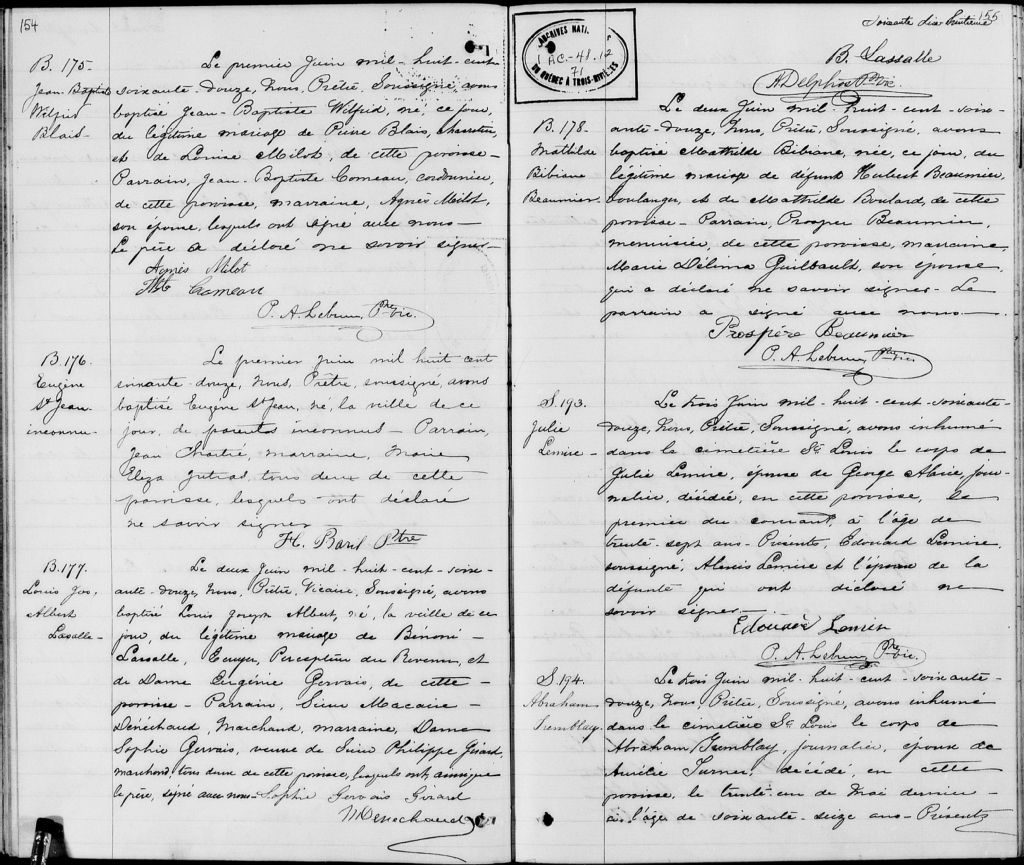 154
B. 175-
Jean-Baptiste
Wilfrid
Blais-
Le premier Juin mil-huit-cent
soixante-douze, Nous, Prêtre, Soussigné, avons
baptisé Jean-Baptiste Wilfrid, né, ce jour,
du légitime mariage de Pierre Blais, charretier,
et de Louise Milot, de cette paroisse-
Parrain, Jean-Baptiste Comeau, cordonnier,
de cette paroisse, marraine, Agnès Milot,
son épouse, lesquels ont signé avec nous-
Le père a déclaré ne savoir signer-
Agnès Milot
Comeau
P. A. Lebrun, Ptre Vic.
B. 176.
Eugène
St Jean
inconnu-
Le premier Juin mil huit cent
soixante-douze, Nous, Prêtre, soussigné, avons
baptisé Eugène St Jean, né, la veille de ce
jour, de parents inconnus- Parrain,
Jean, marraine, Marie
Eliza Jutras, tous deux de cette
paroisse, lesquels ont déclaré
ne savoir signer-
H. Baril Ptre
B. 177.
Louis Jos.
Albert
Lasalle-
Le deux Juin mil-huit-cent-soix-
ante-douze, Nous, Prêtre, Vicaire, Soussigné, avons
baptisé Louis Joseph Albert, né, la veille de ce
jour, du légitime mariage de Bénoni-
Lassalle, Ecuyer, Percepteur du Revenu, et
de Dame Eugénie Gervais, de cette-
paroisse- Parrain, Sieur Macaire-
Dénéchaud, Marchand, marraine, Dame
Sophie Gervais, veuve de Sieur Philippe Girard,
marchand, tous deux de cette paroisse, lesquels ont ainsi que
le père, signé avec nous- Sophie Gervais Girard
M Denechaud
155
Soixante dix huitième
ARCHIVES NATI.
1 AC-48.12
71
DU QUÉBEC À TROIS-RIVIÈRES
B. Lassalle
Delphos Ptre Vic.
B. 178.
Mathilde
Bibiane
Beaumier.
Le deux Juin mil-huit-cent-soix-
ante-douze, Nous, Prêtre, Soussigné, avons
baptisé Mathilde Bibiane, née, ce jour, du
légitime mariage de défunt Hubert Beaumier,
boulanger, et de Mathilde Boulard, de cette
paroisse- Parrain, Prosper Beaumier,
menuisier, de cette paroisse, marraine,
Marie Délima Guilbault, son épouse,
qui a déclaré ne savoir signer- Le
parrain a signé avec nous-
Prospère Beaumier
P. A. Lebrun, Ptre Vic.
S. 193.
Julie
Lemire-
Le trois Juin mil-huit-cent-soixante-
douze, Nous, Prêtre, Soussigné, avons inhumé
dans le cimetière St Louis le corps de
Julie Lemire, épouse de George Alarie, jour-
nalier, décédée, en cette paroisse, le
premier du courant, à l'âge de
trente-sept ans- Présents, Edouard Lemire,
soussigné, Alexis Lemire et l'époux de la
défunte qui ont déclaré ne
savoir signer-
Edouard Lemire
P. A. Lebrun, Ptre Vic.
S. 194.
Abraham
Tremblay.
Le trois Juin mil-huit-cent-soixante-
douze, Nous Prêtre, Soussigné, avons inhumé
dans le cimetière St Louis le corps de
Abraham Tremblay, journalier, époux de
Aurélie Turner, décédé, en cette
paroisse, le trente-un de Mai dernier-
à l'âge de soixante-seize ans- Présents